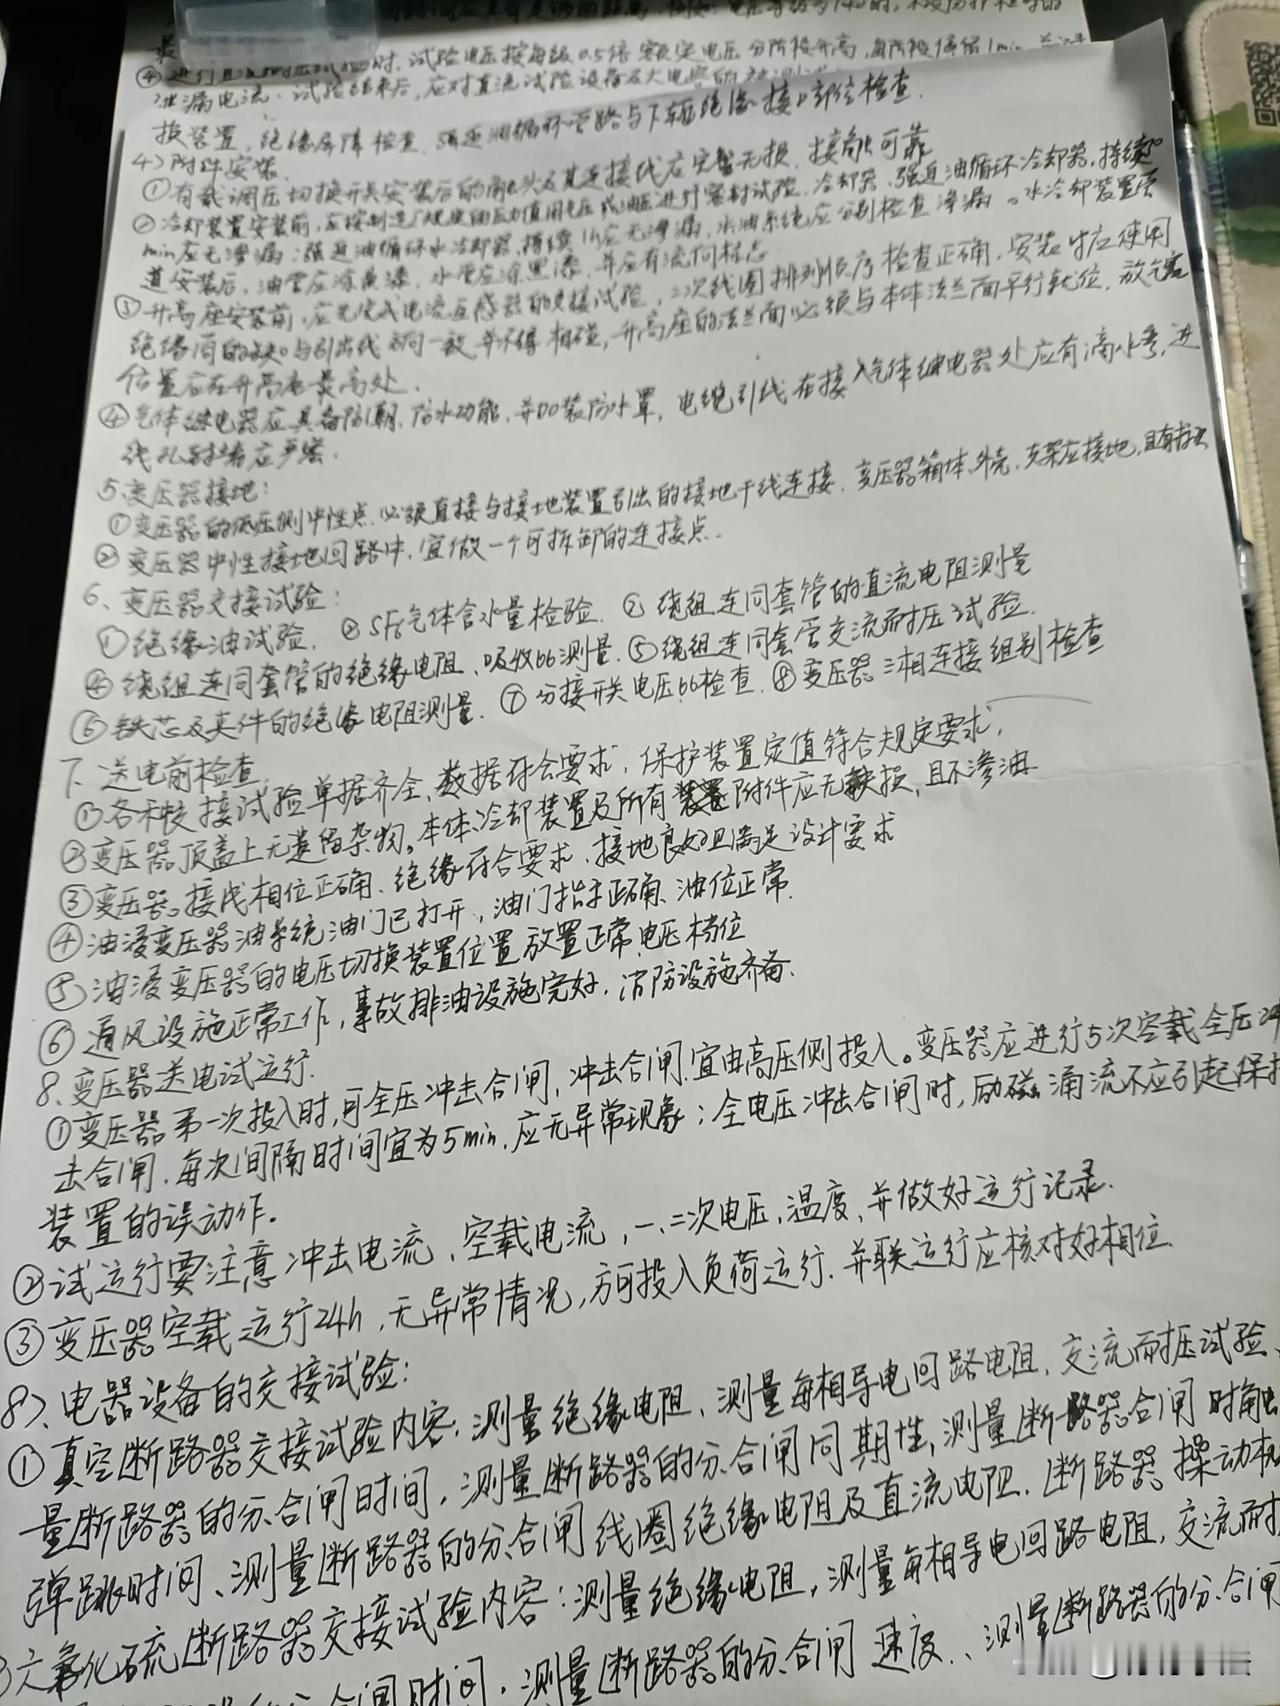 ④进行直流耐压试验时,试验电压按每级0.5倍额定电压分阶段升高,每阶段停留1min
泄漏电流.试验结束后,应对直流试验设备及大电容的被测
换装置,绝缘屏障检查.强迫油循环管路与下轭绝缘接口部位检查.
4)附件安装
①有载调压切换开关安装后的触头及其连接线应完整无损,接触可靠
②冷却装置安装前,应按制造厂规定的压力值用气压或油压进行密封试验,冷却器、强迫油循环冷却器,持续30
min应无渗漏;强迫油循环水冷却器,持续1h应无渗漏,水油系统应分别检查渗漏。水冷却装置管
道安装后,油管应涂黄漆,水管应涂黑漆,并应有流向标志
③升高座安装前,应先完成电流互感器的交接试验,二次线圈排列顺序检查正确,安装时应使用
绝缘筒的缺口与引出线方向一致并不得相碰,升高座的法兰面必须与本体法兰面平行就位.放气塞
位置应在升高座最高处.
④气体继电器应具备防潮、防水功能,并加装防水罩,电缆引线在接入气体继电器处应有滴水弯,进
线孔封堵应严密.
5.变压器接地:
①变压器的低压侧中性点必须直接与接地装置引出的接地干线连接.变压器箱体、外壳,支架应接地,且有标识
②变压器中性接地回路中,宜做一个可拆卸的连接点.
6、变压器交接试验:
①绝缘油试验. ②SF6气体含水量检验. ③绕组连同套管的直流电阻测量
④绕组连同套管的绝缘电阻、吸收比测量.⑤绕组连同套管交流耐压试验.
⑥铁芯及夹件的绝缘电阻测量. ⑦分接开关电压比检查.⑧变压器三相连接组别检查
7、送电前检查
①各种交接试验单据齐全,数据符合要求,保护装置定值符合规定要求,
②变压器顶盖上无遗留杂物。本体、冷却装置及所有附件应无缺损,且不渗油
③变压器接线相位正确、绝缘符合要求,接地良好且满足设计要求
④油浸变压器油系统油门已打开,油门指示正确、油位正常.
⑤油浸变压器的电压切换装置位置放置正常电压档位
⑥通风设施正常工作,事故排油设施完好.消防设施齐备.
8.变压器送电试运行.
①变压器第一次投入时,可全压冲击合闸,冲击合闸宜由高压侧投入。变压器应进行5次空载全压冲
击合闸.每次间隔时间宜为5min,应无异常现象;全电压冲击合闸时,励磁涌流不应引起保护
装置的误动作.
②试运行要注意冲击电流,空载电流,一、二次电压,温度,并做好运行记录.
③变压器空载运行24h,无异常情况,方可投入负荷运行.并联运行应核对好相位
8>、电器设备的交接试验:
①真空断路器交接试验内容:测量绝缘电阻,测量每相导电回路电阻,交流耐压试验、
量断路器的分、合闸时间,测量断路器的分、合闸同期性,测量断路器合闸时触
弹跳时间、测量断路器的分、合闸线圈绝缘电阻及直流电阻.断路器操动机
六氟化硫断路器交接试验内容:测量绝缘电阻,测量每相导电回路电阻,交流耐
合闸时间,测量断路器的分、合闸速度、测量断路器的分、合闸